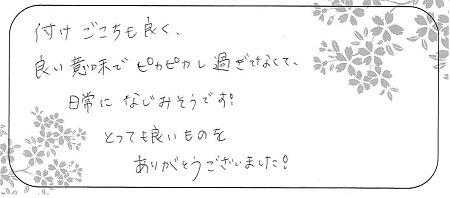 付けごこちも良く、
良い意味でピカピカし過ぎてなくて、
日常になじみそうです!
とっても良いものを
ありがとうございました!